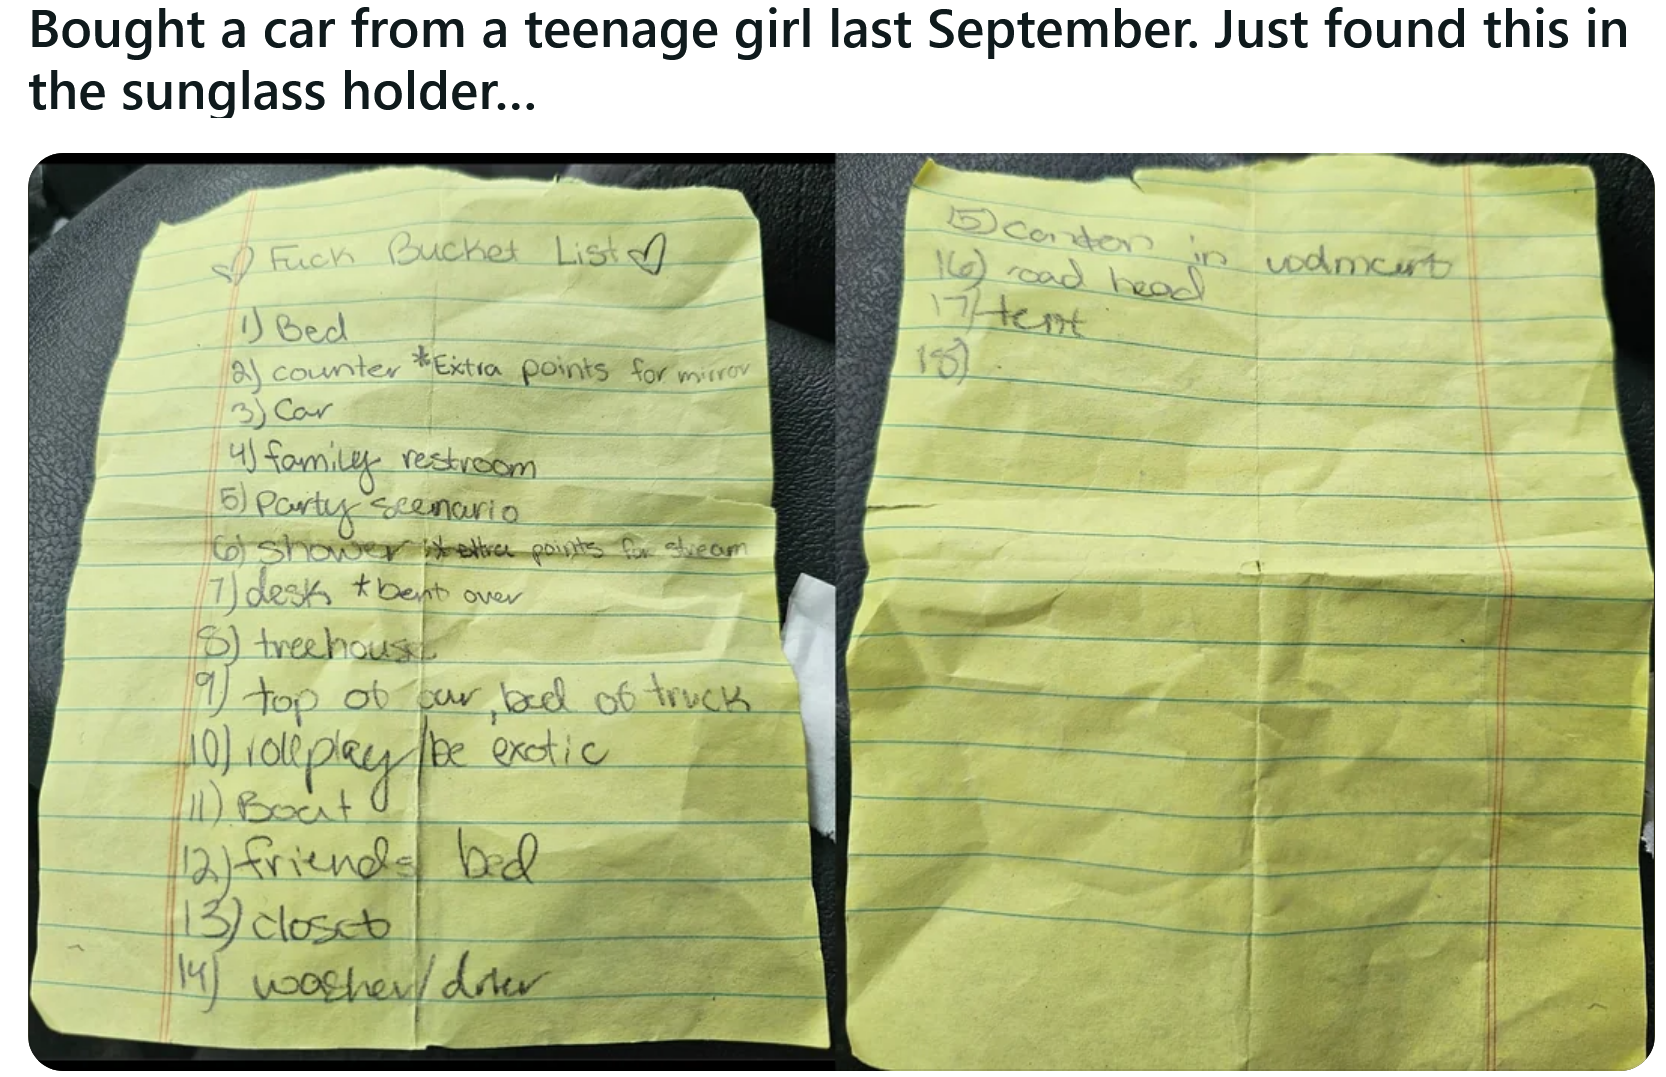 Bought a car from a teenage girl last September. Just found this in
the sunglass holder...
♡ Fuck Bucket List ♡
1) Bed
2) counter *Extra points for mirror
3) Car
4) family restroom
5) Party scenario
6) shower * extra points for stream
7) desk *bent over
8) treehouse
9) top of car, bed of truck
10) roleplay/be exotic
11) Boat
12) friends bed
13) closet
14) washer/drier
15) in
16) road head
17) tent
18)